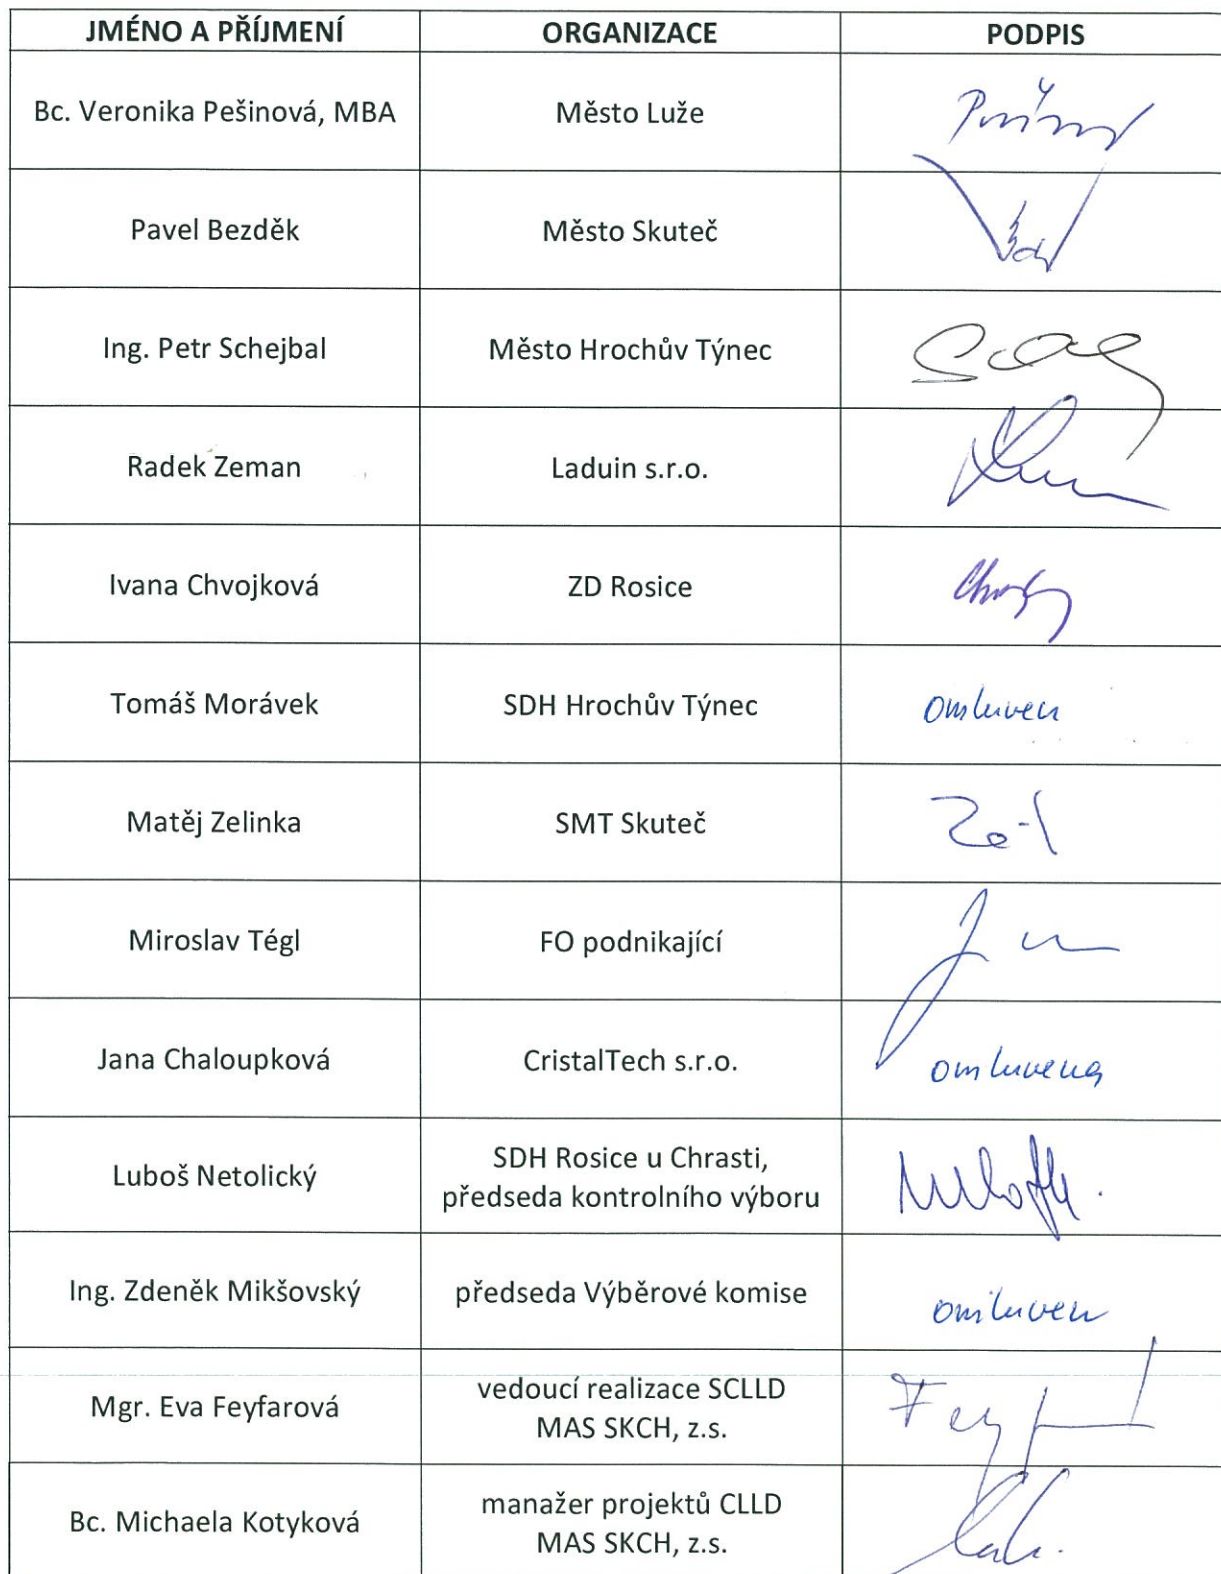 JMÉNO A PŘÍJMENÍ ORGANIZACE PODPIS
Bc. Veronika Pešinová, MBA Město Luže
Pavel Bezděk Město Skuteč
Ing. Petr Schejbal Město Hrochův Týnec
Radek Zeman Laduin s.r.o.
Ivana Chvojková ZD Rosice
Tomáš Morávek SDH Hrochův Týnec omluven
Matěj Zelinka SMT Skuteč
Miroslav Tégl FO podnikající
Jana Chaloupková CristalTech s.r.o. omluvena
Luboš Netolický SDH Rosice u Chrasti,
předseda kontrolního výboru
Ing. Zdeněk Mikšovský předseda Výběrové komise omluven
Mgr. Eva Feyfarová vedoucí realizace SCLLD
MAS SKCH, z.s.
Bc. Michaela Kotyková manažer projektů CLLD
MAS SKCH, z.s.